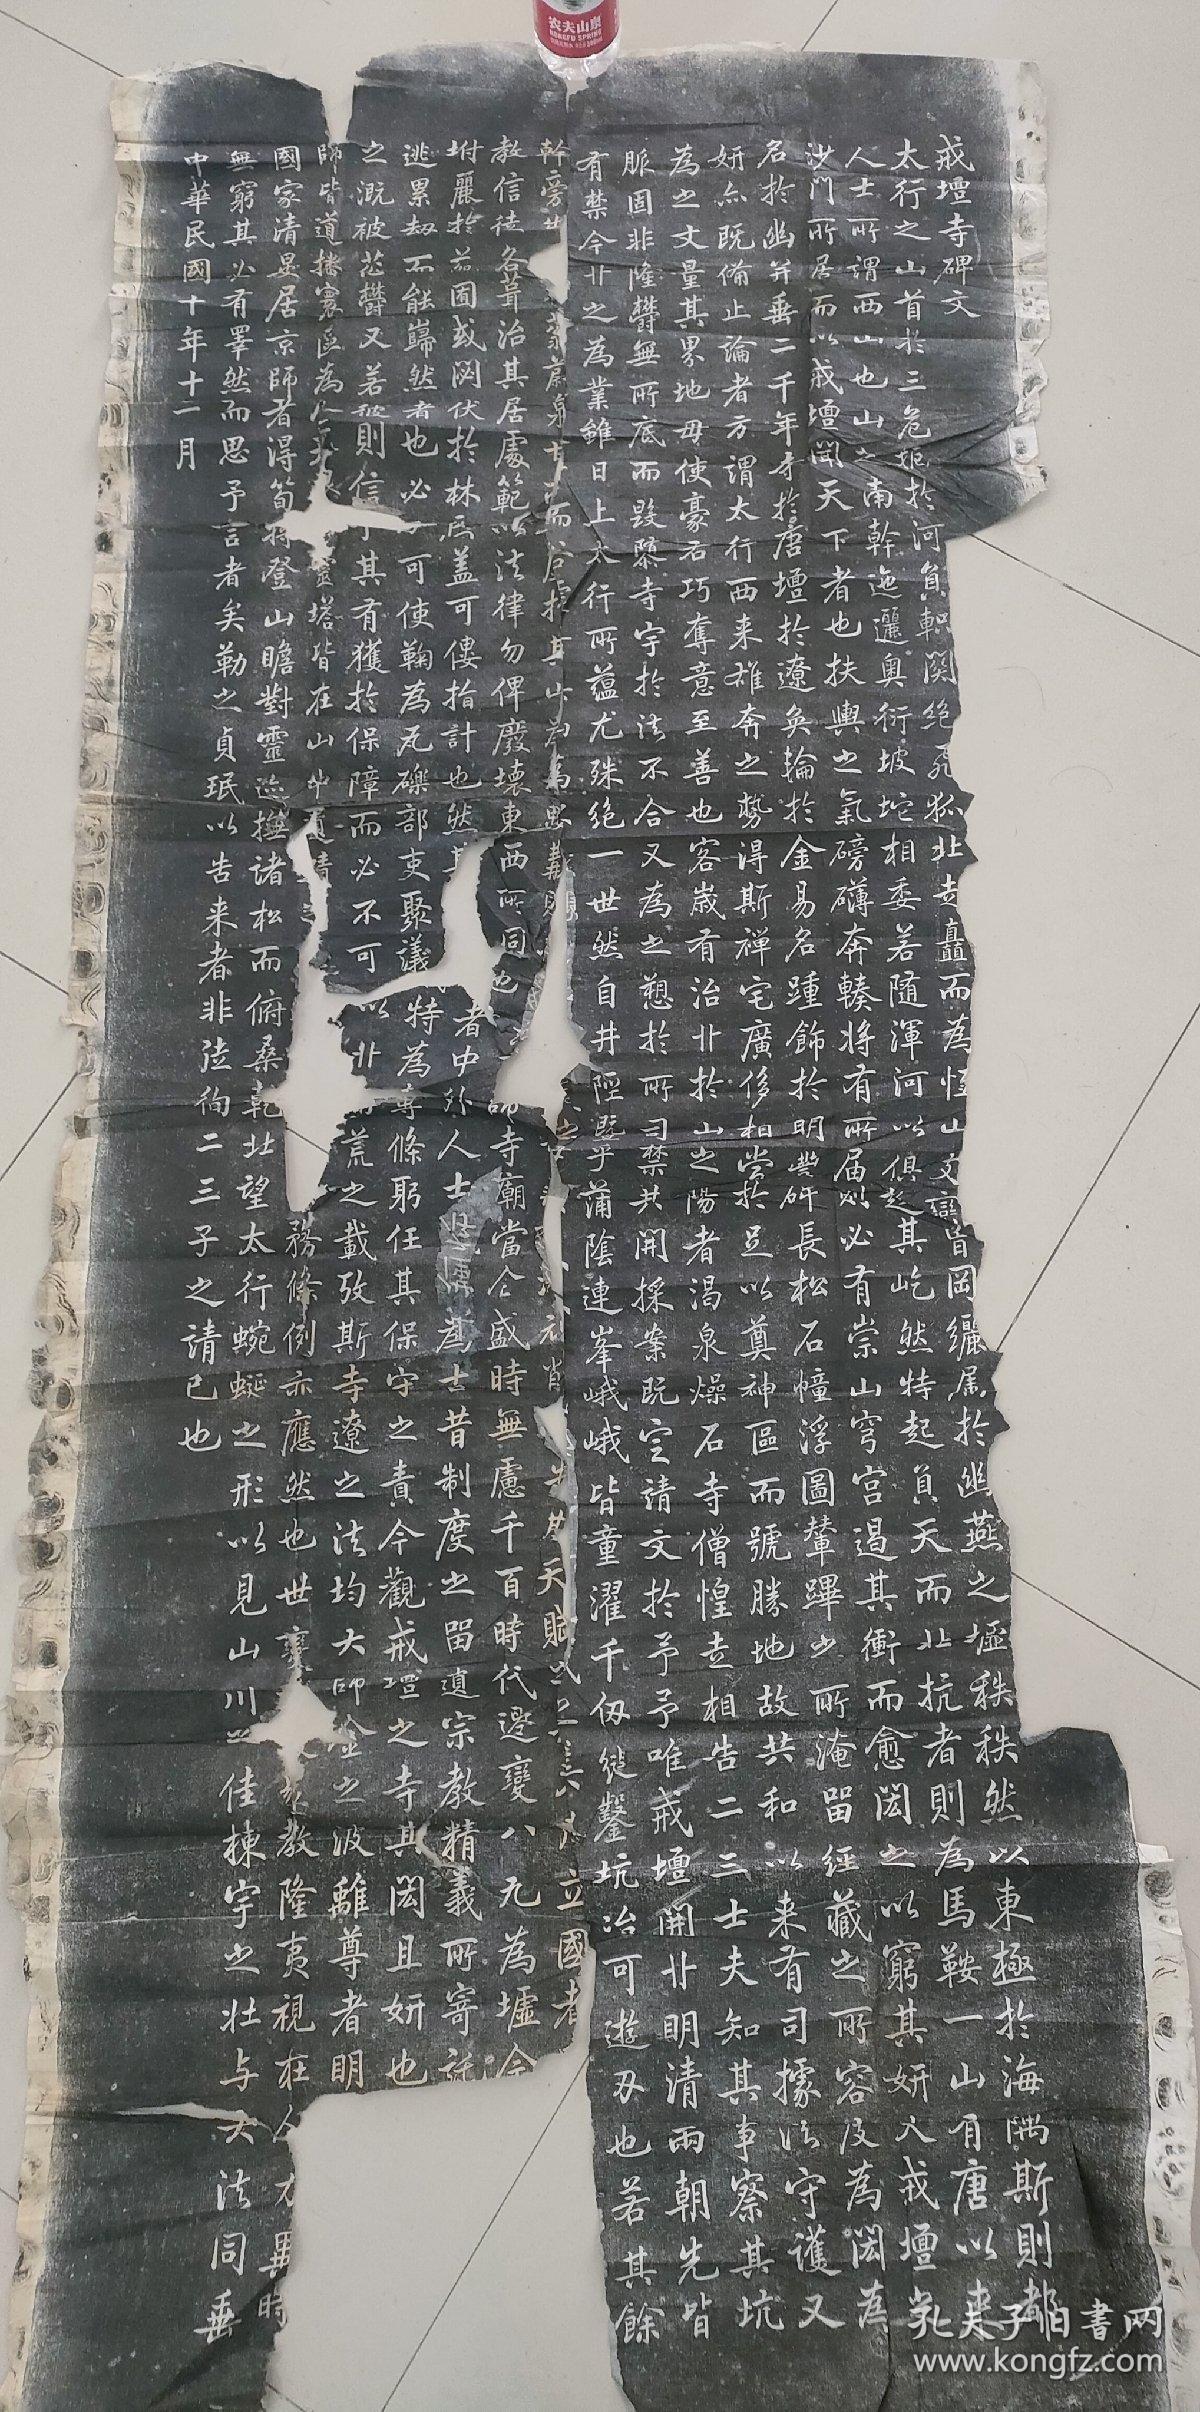 戒壇寺碑文
太行之山首於三危姬於河負軹關絶飛狐北走矗而為恆山文巒皆岡纚屬於幽燕之墟秩秩然以東極於海隅斯則都
人士所謂西山也山之南幹迤邐奧衍坡坨相委若隨渾河以俱起其屹然特起負天而北抗者則為馬鞍一山有唐以來
沙門所居而以戒壇聞天下者也扶輿之氣磅礴奔輳將有所屆則必有崇山穹宮遏其衝而愈閎之以窮其妍入戒壇
名於幽并垂二千年寺於唐壇於遼奐輪於金易名踵飾於明豐碑長松石幢浮圖輦蹕之所淹留經藏之所容皮為閎為
妍亦既備止論者方謂太行西來雄奔之勢得斯禪宅廣侈相當於足以奠神區而號勝地故共和以來有司據法守護又
為之丈量其界地毋使豪右巧奪意至善也客歲有治卝於山之陽者渴泉燥石寺僧惶走相告二三士夫知其事察其坑
脈固非隆鬱無所底而毀隳寺宇於法不合又為之愬於所司禁共開採案既定請文於予予唯戒壇開卝明清兩朝先皆
有禁今卝之為業雖日上太行所蘊尤殊絶一世然自井陘暨乎蒲陰連峯峨峨皆童濯千仭縋鑿坑冶可遊刃也若其餘
幹旁
天賦
立國者
教信徒各葺治其居處範以法律勿俾廢壞東西所同也
寺廟當仝盛時無慮千百時代遷變八九為墟今
坿麗於茲固或閟伏於林
蓋可僂指計也然
者中外人士
昔制度之留遺宗教精義所寄託
逃累劫不能巋然者也必
可使鞠為瓦礫部吏聚議
特為專條躬任其保守之責今觀戒壇之寺其閎且妍也
之溉被苾鬱又若彼則信
其有獲於保障而必不可以卝
荒之載攷斯寺遼之法均大師金之波離尊者明
師皆道播寰區為
靈塔皆在山中
務條例亦應然也世
教隆夷視在人
國家清晏居京師者得筍將登山瞻對靈迹撫諸松而俯桑乾北望太行蜿蜒之形以見山川之佳棟宇之壯与大法同垂
無窮其必有睪然而思予言者矣勒之貞珉以告來者非徒徇二三子之請已也
中華民國十年十一月
农夫山泉
NONGFU SPRING
孔夫子旧书网
www.kongfz.com